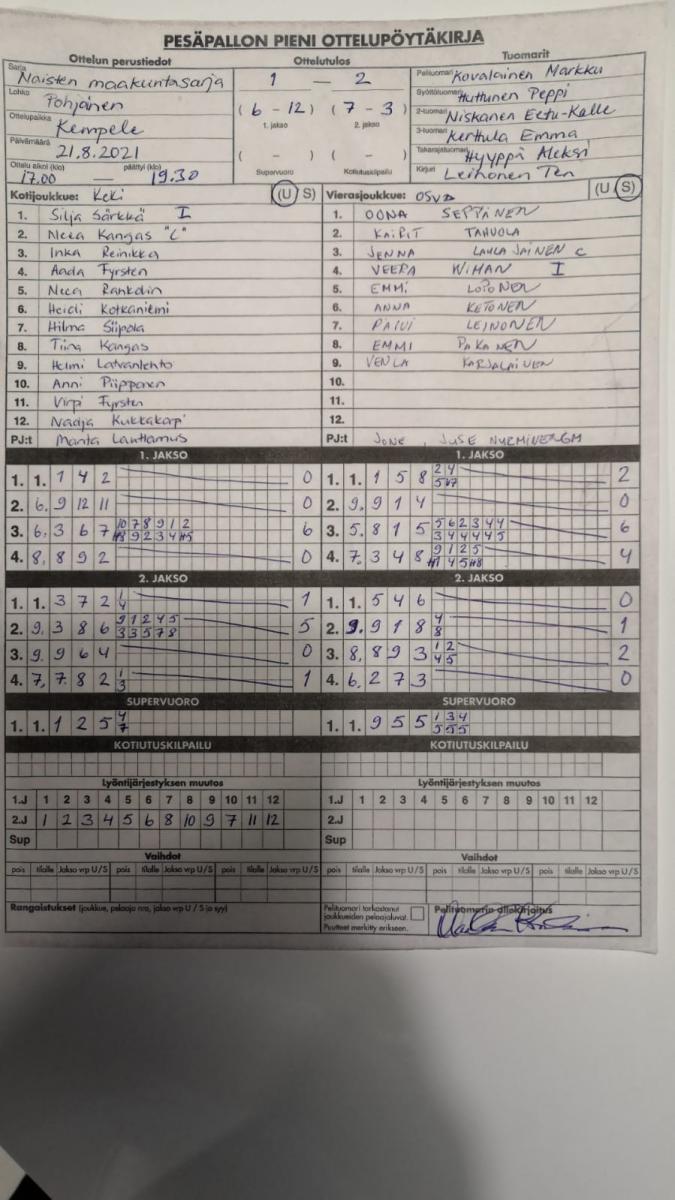 PESÄPALLON PIENI OTTELUPÖYTÄKIRJA
Ottelun perustiedot
Sarja Naisten maakuntasarja
Lohko Pohjoinen
Ottelupaikka Kempele
Päivämäärä 21.8.2021
Ottelu alkoi (klo) päättyi (klo)
17.00 — 19.30
Ottelutulos
1 — 2
( 6 - 12 ) ( 7 - 3 )
1. jakso 2. jakso
( - ) ( - )
Supervuoro Kotiutuskilpailu
Tuomarit
Pelituomari Kovalainen Markku
Syöttötuomari Huttunen Peppi
2-tuomari Niskanen Eetu-Kalle
3-tuomari Kerttula Emma
Takarajatuomari Hyyppä Aleksi
Kirjuri Leinonen
Kotijoukkue: Keki (U S)
1. Silja Särkkä I
2. Neea Kangas "C"
3. Inka Reinikka
4. Aada Fyrsten
5. Neea Rankdin
6. Heidi Kotkaniemi
7. Hilma Siipola
8. Tiina Kangas
9. Helmi Latvanlehto
10. Anni Piipponen
11. Virpi Fyrsten
12. Nadja
PJ:t Manta
Vierasjoukkue: (U S)
1. OONA SEPPÄNEN
2. TAHVOLA
3. JENNA C
4. VEERA WIMAN I
5. EMMI LOPONEN
6. ANNA KETONEN
7. PÄIVI LEINONEN
8. EMMI PAKANEN
9. VENLA KARJALAINEN
10.
11.
12.
PJ:t JONE, JUSE
1. JAKSO
1. 1. 1 4 2 0
2. 6. 9 12 11 0
3. 6. 3 6 7 10 7 8 9 1 2 6
4. 8. 8 9 2 0
1. JAKSO
1. 1. 1 5 8 2 4 2
2. 9. 9 1 4 0
3. 5. 8 1 5 5 6 2 3 4 4 6
3 4 4 4 4 5
4. 7. 3 4 8 9 1 2 5 4
2. JAKSO
1. 1. 3 7 2 1 1
4
2. 9. 3 8 6 9 1 2 4 5 5
3 3 5 7 8
3. 9. 9 6 4 0
4. 7. 7 8 2 1 1
3
2. JAKSO
1. 1. 5 4 6 0
2. 9. 9 1 8 4 1
8
3. 8. 8 9 3 1 2 2
4 5
4. 6. 2 7 3 0
SUPERVUORO
1. 1. 1 2 5 4
7
SUPERVUORO
1. 1. 9 5 5 1 3 4
5 5 5
KOTIUTUSKILPAILU
KOTIUTUSKILPAILU
Lyöntijärjestyksen muutos
1.J 1 2 3 4 5 6 7 8 9 10 11 12
2.J 1 2 3 4 5 6 8 10 9 7 11 12
Sup
Lyöntijärjestyksen muutos
1.J 1 2 3 4 5 6 7 8 9 10 11 12
2.J
Sup
Vaihdot
pois tilalle Jakso vrp U/S pois tilalle Jakso vrp U/S
Vaihdot
pois tilalle Jakso vrp U/S pois tilalle Jakso vrp U/S
Rangaistukset (joukkue, pelaaja nro, jakso vrp U / S ja syy)
Pelituomari tarkastanut joukkueiden pelaajaluvat.
Puutteet merkitty erikseen.
Pelituomarin allekirjoitus